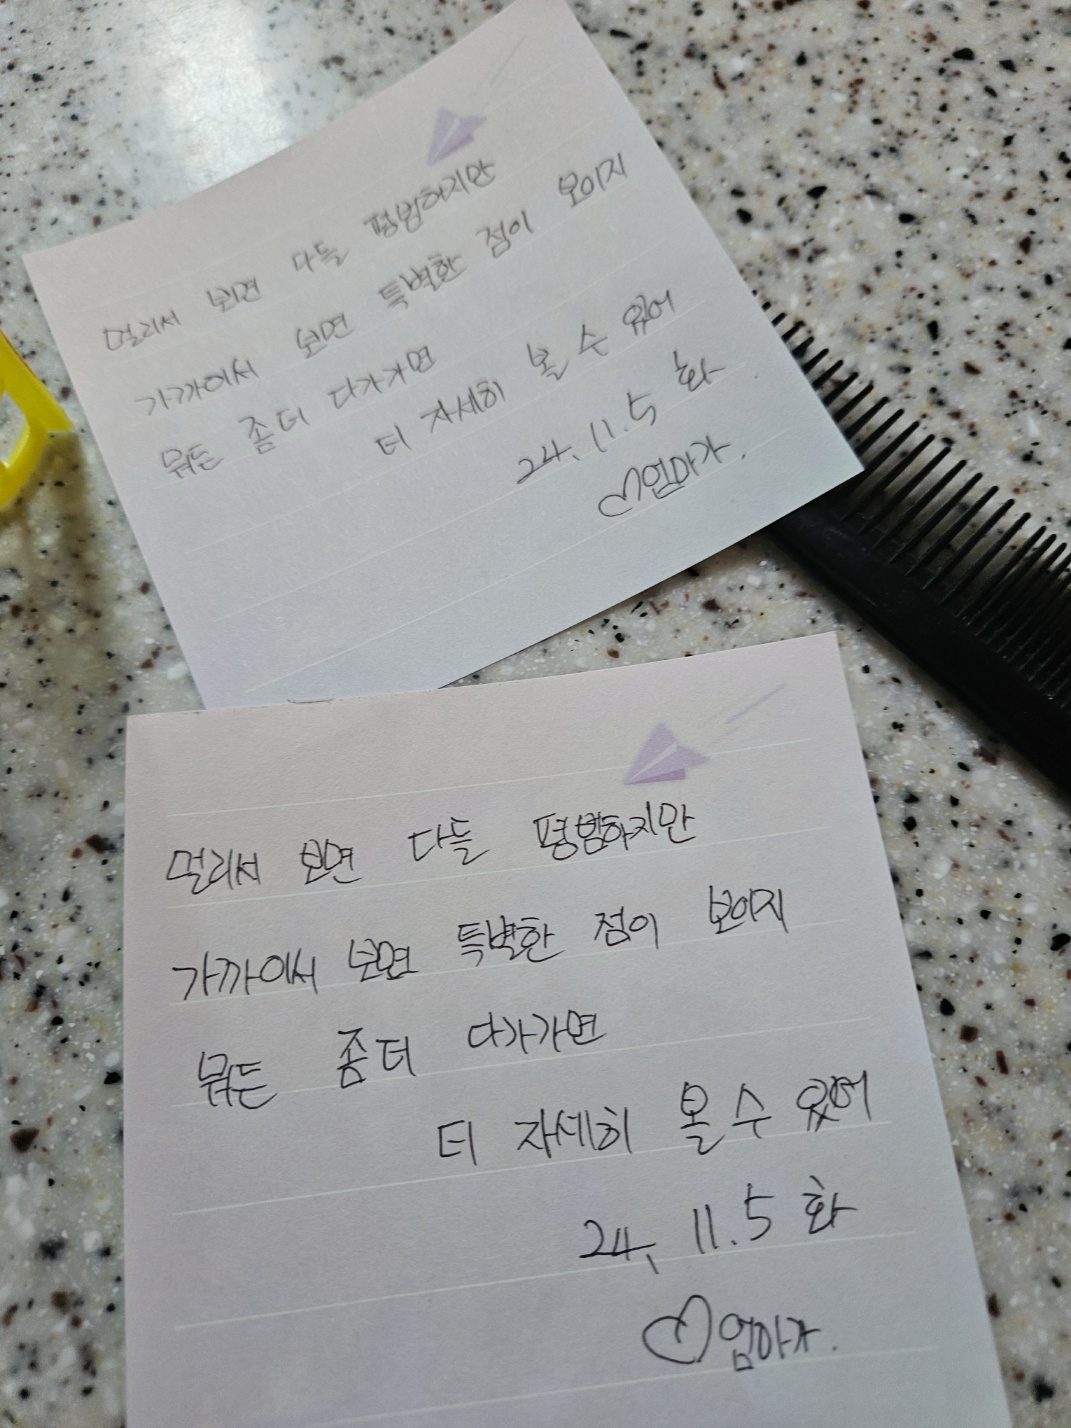 멀리서 보면 다들 평범하지만
가까이서 보면 특별한 점이 보이지
뭐든 좀더 다가가면
더 자세히 볼 수 있어
24. 11. 5 화
♡엄마가.
멀리서 보면 다들 평범하지만
가까이서 보면 특별한 점이 보이지
뭐든 좀더 다가가면
더 자세히 볼 수 있어
24. 11. 5 화
♡엄마가.